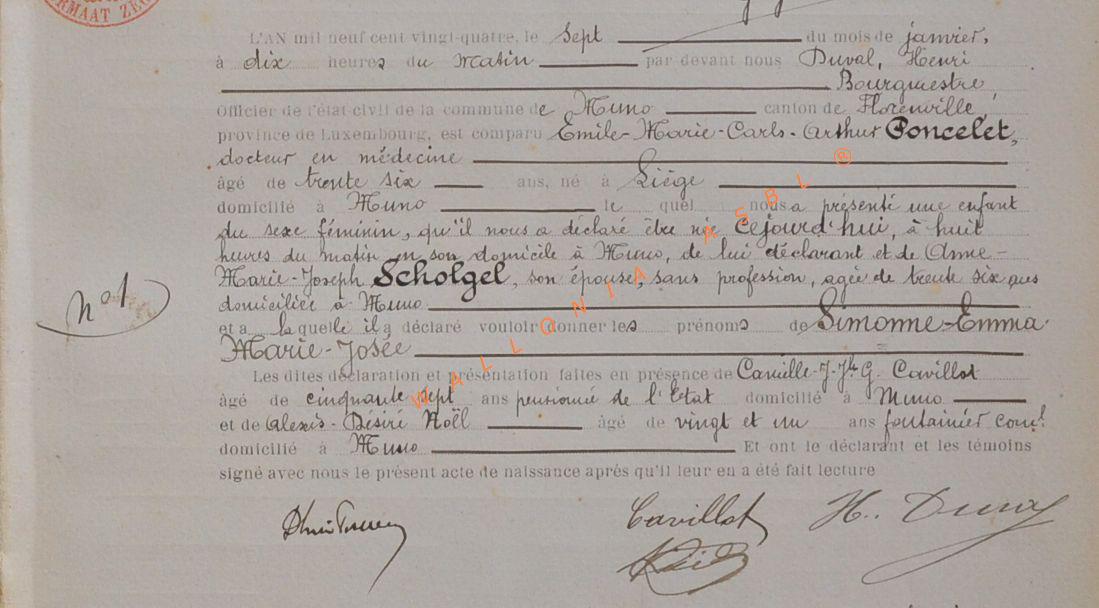 RMAAT ZEG
L'AN mil neuf cent vingt-quatre, le sept du mois de janvier,
à dix heures du matin par devant nous Duval, Henri
Bourgmestre
Officier de l'état civil de la commune de Muno canton de Florenville,
province de Luxembourg, est comparu Emile-Marie-Carls-Arthur Poncelet,
docteur en médecine
âgé de trente six ans, né à Liège
domicilié à Muno le quel nous a présenté une enfant
du sexe féminin, qu'il nous a déclaré être née cejourd'hui, à huit
heures du matin en son domicile à Muno, de lui déclarant et de Anne-
Marie-Joseph Scholgel, son épouse, sans profession, agée de trente six ans
domiciliée à Muno
et a laquelle il a déclaré vouloir donner les prénoms de Simonne-Emma-
Marie-Josée
Les dites déclaration et présentation faites en présence de Camille-J-Jh G. Cavillot
âgé de cinquante sept ans pensionné de l'Etat domicilié à Muno
et de Alexis-Désiré Noël âgé de vingt et un ans fontainier coml
domicilié à Muno Et ont le déclarant et les témoins
signé avec nous le présent acte de naissance après qu'il leur en a été fait lecture
N° 1
Cavillot H. Duval
WALLONIA ASBL ®